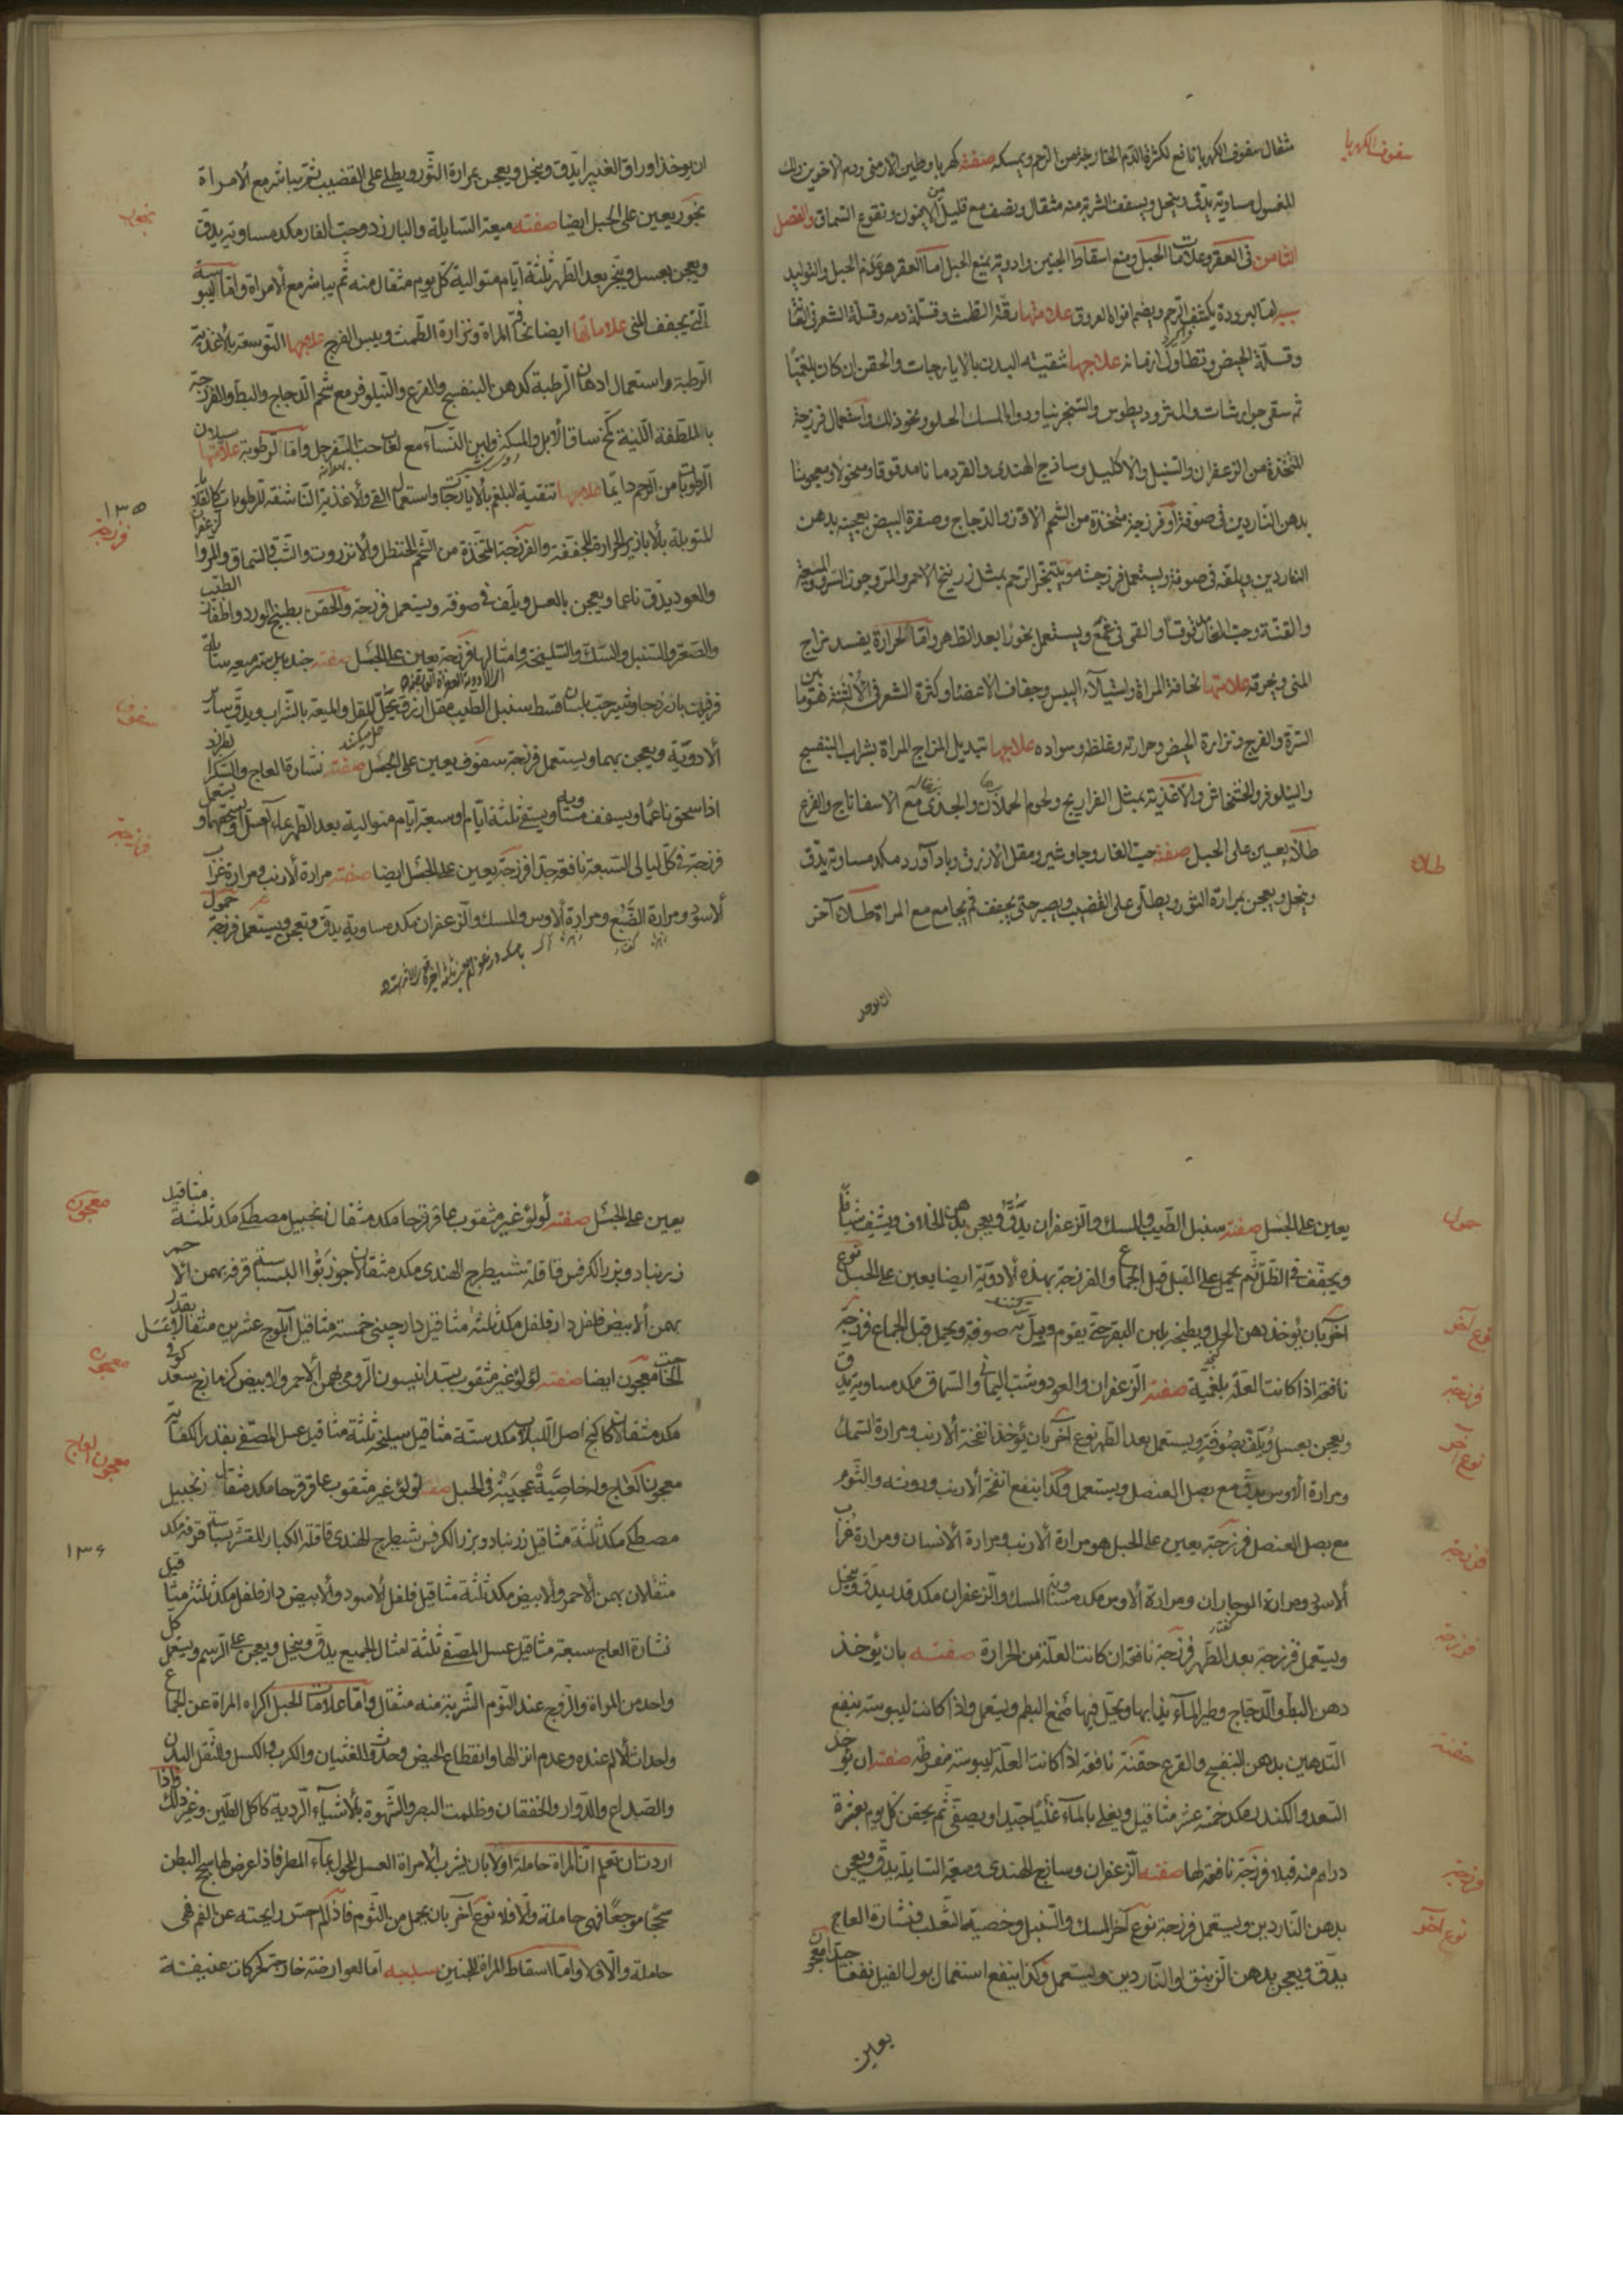 سفوف الكهربا
مثقال سفوف الكهربا نافع لكثرة الدم الخارجة من الرحم ويمسكه صفته كهربا وطين الارمنى ودم الاخوين ولك
المغسول مساوية يدق وينخل ويسفف الشربة منه مثقال ونصف مع قليل من الافيون ونقوع السماق والفصل
الثامن فى العقر وعلامات الحبل ومنع اسقاط الجنين وادوية يمنع الحبل اما العقر هو عدم الحبل والتوليد
سببه اما البرودة يكثف الرحم ويضم افواه العروق علامتها رقة الطمث وقلة دمه وقلة الشعر فى العانة
وقلة الحيض وتطاول ازمانه علاجها تنقية البدن بالايارجات والحقن ان كان بلغميا
ثم سقى جوارشات والمثروديطوس والسنجرنيا ودواء المسك الحلو ونحو ذلك واستعمال فرزجة
المتخذة من الزعفران والسنبل والاكليل وساذج الهندى والقردمانا مدقوقا ومنخولا ومعجونا
بدهن الناردين فى صوفة او فرزجة متخذة من الشحم الاوز والدجاج وصفرة البيض يعجينه بدهن
الناردين ويلقه فى صوفة ويستعمل فرزجة او يتبخر الرحم بمثل زرنيخ الاحمر والمر وجوز السرو والميعة
والقنة وحب الغار يستعمل بخورا بعد الطهر واما الحرارة يفسد مزاج
المنى ويحرقه علامتها نحافة المراة واستيلاء اليبس وجفاف الاعضاء وكثرة الشعر فى
السرة والفرج ونزارة الحيض وحرارته وغلظه وسواده علاجها تبديل المزاج المراة بشراب البنفسج
والنيلوفر والخشخاش والاغذية بمثل الفراريج ولحوم الحملان والجدى مع الاسفاناج والقرع
طلاء
طلاء يعين على الحبل صفته حب الغار وجاوشير ومقل الازرق وبادآورد مكد مساوية يدق
وينخل ويعجن بمرارة الثور ويطلى على القضيب ويصبر حتى يجفف ثم يجامع مع المراة طلاء آخر
ان يوخذ
ان يوخذ اوراق الغبيرا يدق وينخل ويعجن بمرارة الثور ويطلى على القضيب ثم يباشر مع الامراة
بخور
بخور يعين على الحبل ايضا صفته ميعة السايلة والبارزد وحب الغار مكد مساوية يدق
ويعجن بعسل ويبخر بعد الطهر ثلثة ايام متوالية كل يوم مثقال منه ثم يباشر مع الامراة واما اليبوسة
التى يجفف المنى علاماتها ايضا نحافة المراة ونزارة الطمث ويبس الفرج علاجها التوسعة بالاغذية
الرطبة واستعمال ادهان الرطبة كدهن البنفسج والقرع والنيلوفر مع شحم الدجاج والبط والفرزجة
بالملطفة اللينة كمخ ساق الابل ولبن النساء مع لعاب حب السفرجل واما الرطوبة علامتها سيلان
الرطوبات من الرحم دايما علاجها تنقية البلغم بالايارجات واستعمال القى والاغذية الناشفة للرطوبات كالقلايا
١٣٥
فرزجة
المتوبلة بالابازير الحرارة المجففة والفرزجة المتخذة من الشحم الحنظل والانزروت والشب والسماق والمر والزعفران
والعود يدق ناعما ويعجن بالعسل ويلف فى صوفة ويستعمل فرزجة والحقن بطبيخ الورد واظفار الطيب
والصعتر والسنبل والسك والسليخة وامثالها فرزجة يعين على الحبل صفته جندبيدستر ميعة سائلة
سفوف
فرفيون بارزد جاوشير حب بلسان قسط سنبل الطيب مقل ازرق يحل المقل والميعة بالشراب ويدق ساير
الادوية ويعجن بهما ويستعمل فرزجة سفوف يعين على الحبل صفته نشارة العاج والسكر
اذا سحق ناعما ويسفف مساوية ويسقى ثلثة ايام او سبعة ايام متوالية بعد الطهر بماء العسل
فرزجة
فرزجة فى كل ليالى السبعة نافعة جدا فرزجة يعين على الحبل ايضا صفته مرارة الارنب ومرارة غراب
الاسود ومرارة الضبع ومرارة الاوس والمسك والزعفران مكد مساوية يدق ويعجن ويستعمل فرزجة
حمول
يعين على الحبل صفته سنبل الطيب والمسك والزعفران يدق ويعجن بدهن الخلاف ويشيف شيافا
ويجفف فى الظل ثم يحمل على القبل قبل الجماع والفرزجة بهذه الادوية ايضا يعين على الحبل نوع
نوع آخر
آخر بان يؤخذ دهن الحل ويطبخه بلبن البقر حتى يقوم ويبل به صوفة ويحمل قبل الجماع فرزجة
فرزجة
نافعة اذا كانت العلة بلغمية صفته الزعفران والعود وشب اليمانى والسماق مكد مساوية يدق
نوع آخر
ويعجن بعسل ويلف بصوفة ويستعمل بعد الطهر نوع آخر بان يؤخذ انفحة الارنب ومرارة السمك
ومرارة الاوس يدق مع بصل العنصل ويستعمل وكذا ينفع انفحة الارنب وروثه والثوم
فرزجة
مع بصل العنصل فرزجة يعين على الحبل هو مرارة الارنب ومرارة الانسان ومرارة غراب
الاسود ومرارة الموجاران ومرارة الاوس مكد مساوية المسك والزعفران مكد قد يدق وينخل
فرزجة
ويستعمل فرزجة بعد الطهر فرزجة نافعة ان كانت العلة من الحرارة صفته بان يؤخذ
دهن البط والدجاج وطير الماء يذابها ويحل فيها صمغ البطم ويستعمل واذا كانت ليبوسة ينفع
حقنة
التدهين بدهن البنفسج والقرع حقنة نافعة اذا كانت العلة ليبوسة مفرطة صفته ان يؤخذ
السعد والكندر مكد خمسة عشر مثاقيل ويغلى بالماء غليا جيدا ويصفى ثم يحقن كل يوم بعشرة
فرزجة
دراهم منه قبلا فرزجة نافعة لها صفته الزعفران وساذج الهندى وميعة السايلة يدق ويعجن
نوع آخر
بدهن الناردين ويستعمل فرزجة نوع آخر المسك والسنبل وخصية الثعلب ونشارة العاج
يدق ويعجن بدهن الزنبق او الناردين ويستعمل وكذا ينفع استعمال بول الفيل نفعا جدا معجون
يعين
معجون
يعين على الحبل صفته لؤلؤ غير مثقوب عاقرقرحا مكد مثقال زنجبيل مصطكى مكد ثلثة مثاقيل
زرنباد وبزر الكرفس قاقلة شيطرج الهندى مكد مثقالان جوزبوا البسباسة قرفة بهمن الاحمر
بهمن الابيض فلفل دارفلفل مكد ثلثة مثاقيل دارچينى خمسة مثاقيل آبلوج عشرين مثقال وعسل بقدر
معجون
الحاجة معجون ايضا صفته لؤلؤ غير مثقوب بسد انيسون الرومى بهمن الاحمر والابيض كزمازج سعد كوفى
مكد مثقالان كاكنج اصل اللبلاب مكد ستة مثاقيل سليخة ثلثة مثاقيل عسل المصفى بقدر الكفاية
معجون العاج
معجون العاج وله خاصية عجيبة فى الحبل صفته لؤلؤ غير مثقوب عاقرقرحا مكد مثقال زنجبيل
مصطكى مكد ثلثة مثاقيل زرنباد وبزر الكرفس شيطرج الهندى قاقلة الكبار المقشر بسباسة قرفة مكد
١٣٦
مثقلان بهمن الاحمر والابيض مكد ثلثة مثاقيل فلفل الاسود والابيض دارفلفل مكد ثلثة مثاقيل
نشارة العاج سبعة مثاقيل عسل المصفى ثلثة امثال الجميع يدق وينخل ويعجن على الرسم ويستعمل كل
واحد من المراة والزوج عند النوم الشربة منه مثقال واما علامات الحبل اكراه المراة عن الجماع
واحداث الالم عنده وعدم انزالها وانقطاع الحيض وحدوث الغثيان والكرب والكسل والثقل البدن
والصداع والدوار والخفقان وظلمت البصر والشهوة بالاشياء الردية كاكل الطين وغير ذلك واذا
اردت ان تعلم ان المراة حاملة اولا بان يشرب الامراة العسل المحلول بماء المطر فاذا عرض لها سحج البطن
سحجا موجعا فهى حاملة والا فلا نوع آخر بان يحمل من الثوم فاذا لم احس رايحته عن الفم فهى
حاملة والا فلا واما اسقاط المراة الجنين سببه اما لعوارضة خارجة كحركات عنيفة